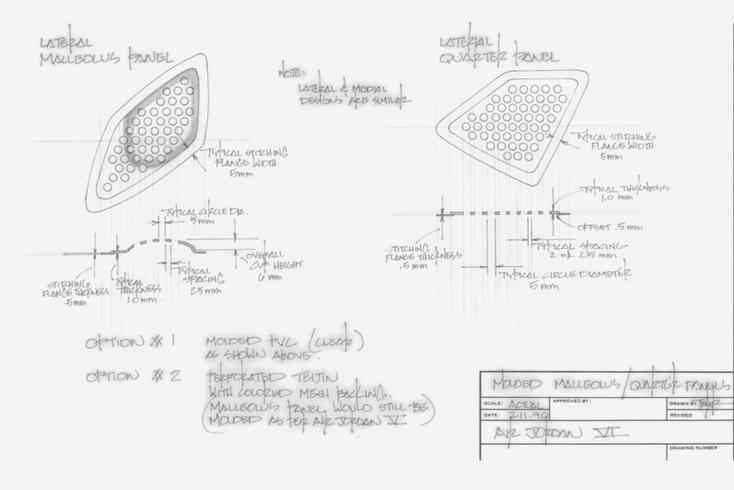 LATERAL
MALLEOLUS PANEL
NOTE:
LATERAL & MEDIAL
DESIGNS ARE SIMILAR
LATERIAL
QUARTER PANEL
TYPICAL STITCHING
FLANGE WIDTH
5mm
TYPICAL STITCHING
FLANGE WIDTH
5mm
TYPICAL CIRCLE DIA.
5mm
OVERALL
CUP HEIGHT.
6mm
STITCHING
FLANGE THICKNESS
.5mm
TYPICAL
THICKNESS
1.0mm
TYPICAL
SPACING
2.5mm
TYPICAL THICKNESS
1.0mm
OFFSET .5mm
STITCHING
FLANGE THICKNESS
.5mm
TYPICAL SPACING
2 or 2.5mm
TYPICAL CIRCLE DIAMETER
5mm
OPTION # 1 MOLDED PVC (CLEAR)
AS SHOWN ABOVE.
OPTION # 2 PERFORATED TEIJIN
WITH COLORED MESH BACKING.
(MALLEOLUS PANEL WOULD STILL BE
MOLDED AS PER AIR JORDAN V)
MOLDED MALLEOLUS/QUARTER PANELS
SCALE: ACTUAL APPROVED BY: DRAWN BY
DATE: 2·11·90 REVISED
AIR JORDAN VI
DRAWING NUMBER